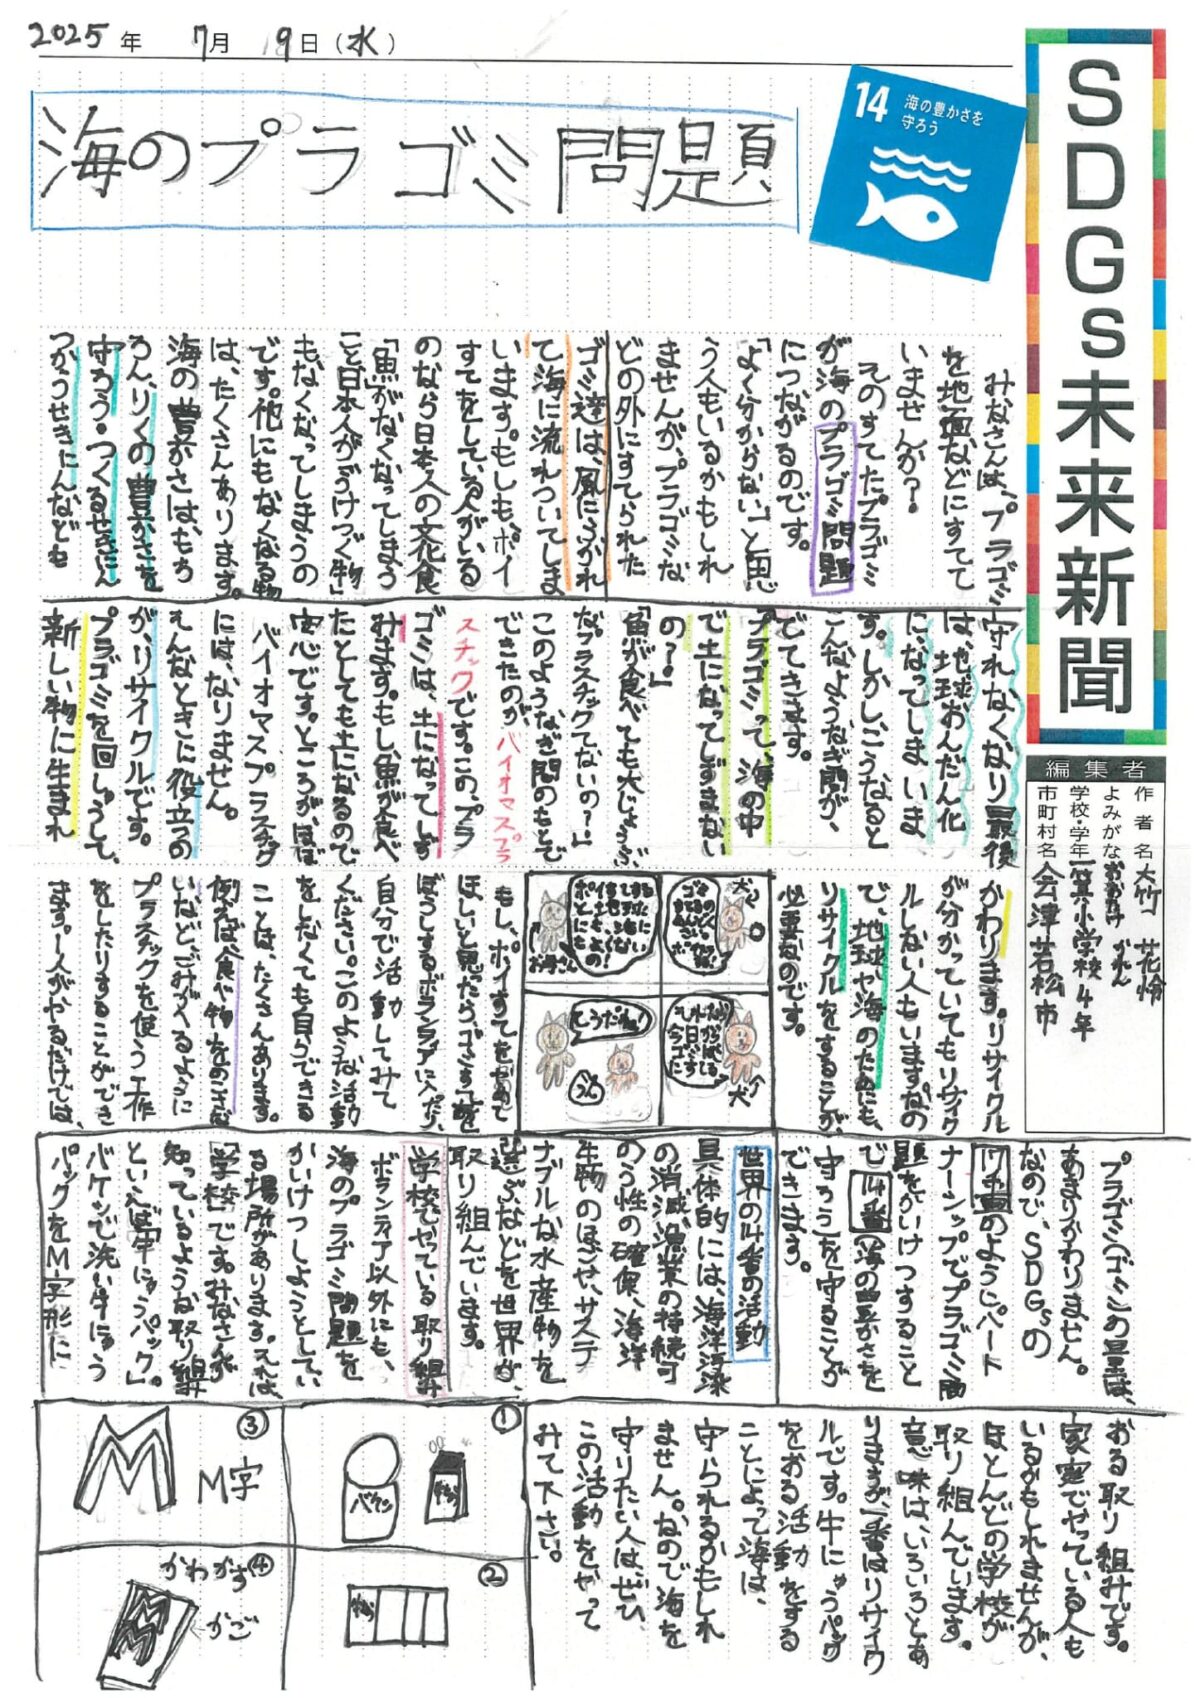 2025年 7月 9日(水)
海のプラゴミ問題
14 海の豊かさを
守ろう
SDGs未来新聞
編集者
作者名 大竹 花怜
よみがな おおたけ かれん
学校・学年 一箕小学校4年
市町村名 会津若松市
みなさんは、プラゴミ
を地面などにすてて
いませんか?
そのすてたプラゴミ
が海のプラゴミ問題
につながるのです。
「よく分からない」と思
う人もいるかもしれ
ませんが、プラゴミな
どの外にすてられた
ゴミ達は、風にふかれ
て海に流れついてしま
います。もしも、ポイ
すてをしている人がいる
のなら日本人の文化食
「魚」がなくなってしまう
こと日本人がうけつぐ物
もなくなってしまうの
です。他にもなくなる物
は、たくさんあります。
海の豊かさは、もち
ろん、りくの豊かさを
守ろう・つくるせきにん
つかうせきにんなども
守れなくなり最後
は、地球おんだん化
に、なってしまいま
す。しかし、こうなると
こんなようなぎ問が、
でてきます。
「プラゴミって、海の中
で土になってしずまない
の?」
「魚が食べても大じょうぶ
なプラスチックてないの?」
このようなぎ問のもとで
できたのが、バイオマスプラ
スチックです。このプラ
ゴミは、土になってしず
みます。もし、魚が食べ
たとしても土になるので
安心です。ところが、ほぼ
バイオマスプラスチック
には、なりません。
そんなときに役立つの
が、リサイクルです。
プラゴミを回しゅうして、
新しい物に生まれ
かわります。リサイクル
が分かっていてもリサイク
ルしない人もいます。なの
で、地球や海のためにも、
リサイクルをすることが
必要なのです。
犬
お母さん
犬
そうだね!
うん
もし、ポイすてをやめて
ほしいと思ったら、ゴミすてを
ぼうしするボランティアに入ったり、
自分で活動してみて
ください。このような活動
をしなくても自らできる
ことは、たくさんあります。
例えば、食べ物をのこさな
いなど、ごみがへるように
プラスチックを使う工作
をしたりすることができ
ます。一人がやるだけでは、
プラゴミ(ゴミ)の量は、
あまりかわりません。
なので、SDGsの
17番のようにパート
ナーシップでプラゴミ問
題をかいけつすること
で14番(海の豊かさを
守ろう)を守ることが
できます。
世界の14番の活動
具体的には、海洋汚染
の消減、漁業の持続可
のう性の確保、海洋
生物のほごや、サステ
ナブルな水産物を
選ぶなどを世界が、
取り組んでいます。
学校でやっている取り組み
ボランティア以外にも、
海のプラゴミ問題を
かいけつしようとしてい
る場所があります。それは、
「学校」です。みなさんが
知っているような取り組み
といえば「牛にゅうパック」。
バケツで洗い牛にゅう
パックをM字形に
おる取り組みです。
家庭でやっている人も
いるかもしれませんが、
ほとんどの学校が
取り組んでいます。
意味は、いろいろとあ
りますが、一番はリサイク
ルです。牛にゅうパック
をおる活動をする
ことによって海は、
守られるかもしれ
ません。なので海を
守りたい人は、ぜひ
この活動をやって
みて下さい。
①
バケツ
②
③
M字
④
かわかす
かご